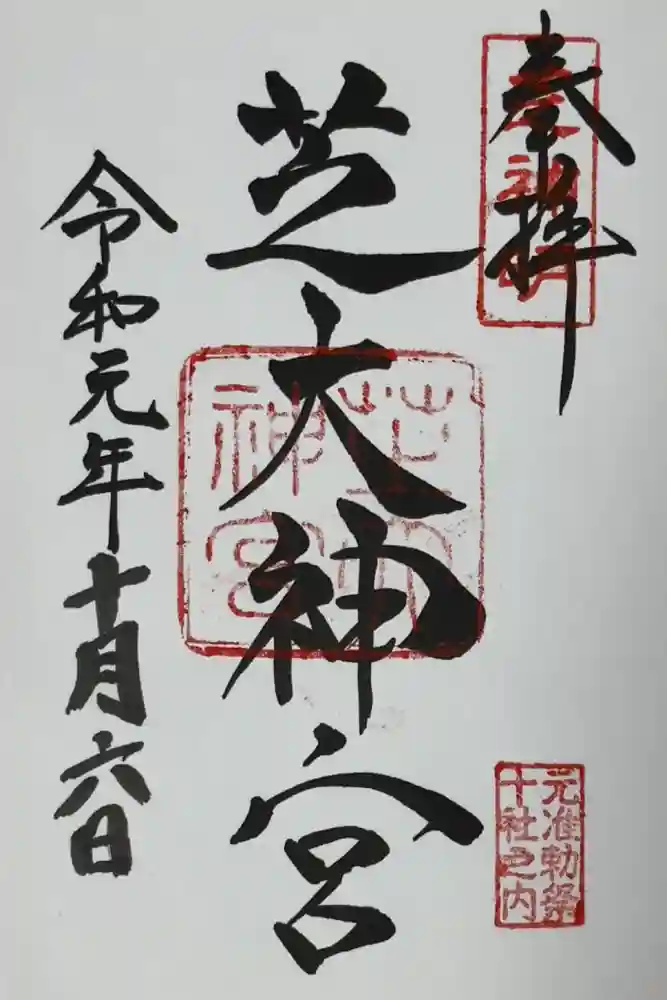 奉拝
元准勅祭
十社之内
芝大神宮
芝大
神宮
令和元年十月六日